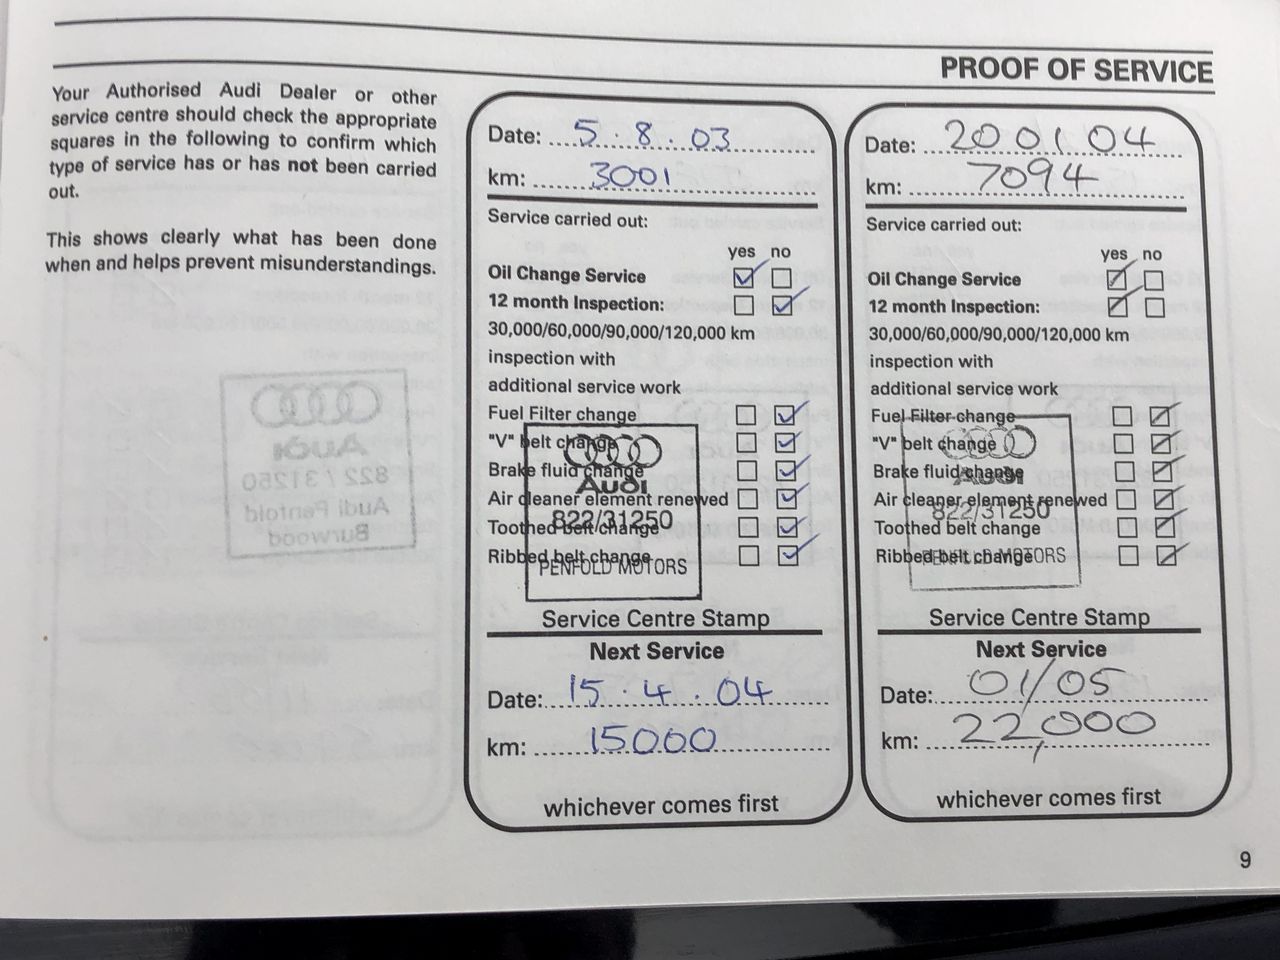 PROOF OF SERVICE
Your Authorised Audi Dealer or other
service centre should check the appropriate
squares in the following to confirm which
type of service has or has not been carried
out.
This shows clearly what has been done
when and helps prevent misunderstandings.
Date: 5.8.03
km: 3001
Service carried out:
yes no
Oil Change Service
12 month Inspection:
30,000/60,000/90,000/120,000 km
inspection with
additional service work
Fuel Filter change
"V" belt change
Brake fluid change
Air cleaner element renewed
Toothed belt change
Ribbed belt change
Audi
822/31250
PENFOLD MOTORS
Service Centre Stamp
Next Service
Date: 15.4.04
km: 15000
whichever comes first
Date: 20 01 04
km: 7094
Service carried out:
yes no
Oil Change Service
12 month Inspection:
30,000/60,000/90,000/120,000 km
inspection with
additional service work
Fuel Filter change
"V" belt change
Brake fluid change
Air cleaner element renewed
Toothed belt change
Ribbed belt change
Audi
822/31250
PENFOLD MOTORS
Service Centre Stamp
Next Service
Date: 01/05
km: 22,000
whichever comes first
9